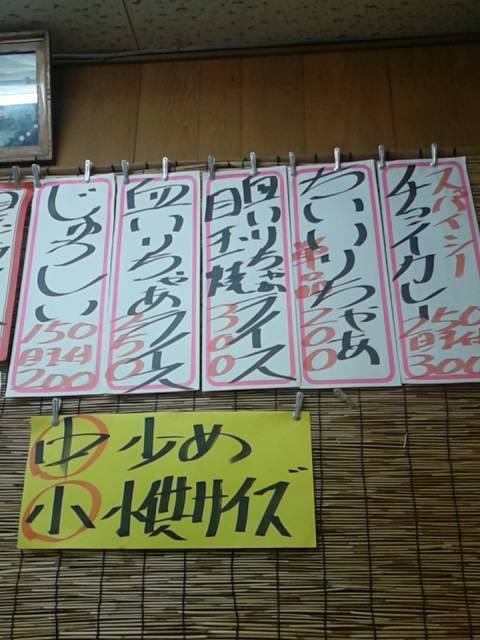 スパイシー
チョイカレー
250
目玉付
300
ちいいりちゃあ
単品200
血いりちゃあライス
目玉焼
300
血いりちゃあライス
250
じゅうしい
150
目玉付
200
中 少め
小 小供サイズ